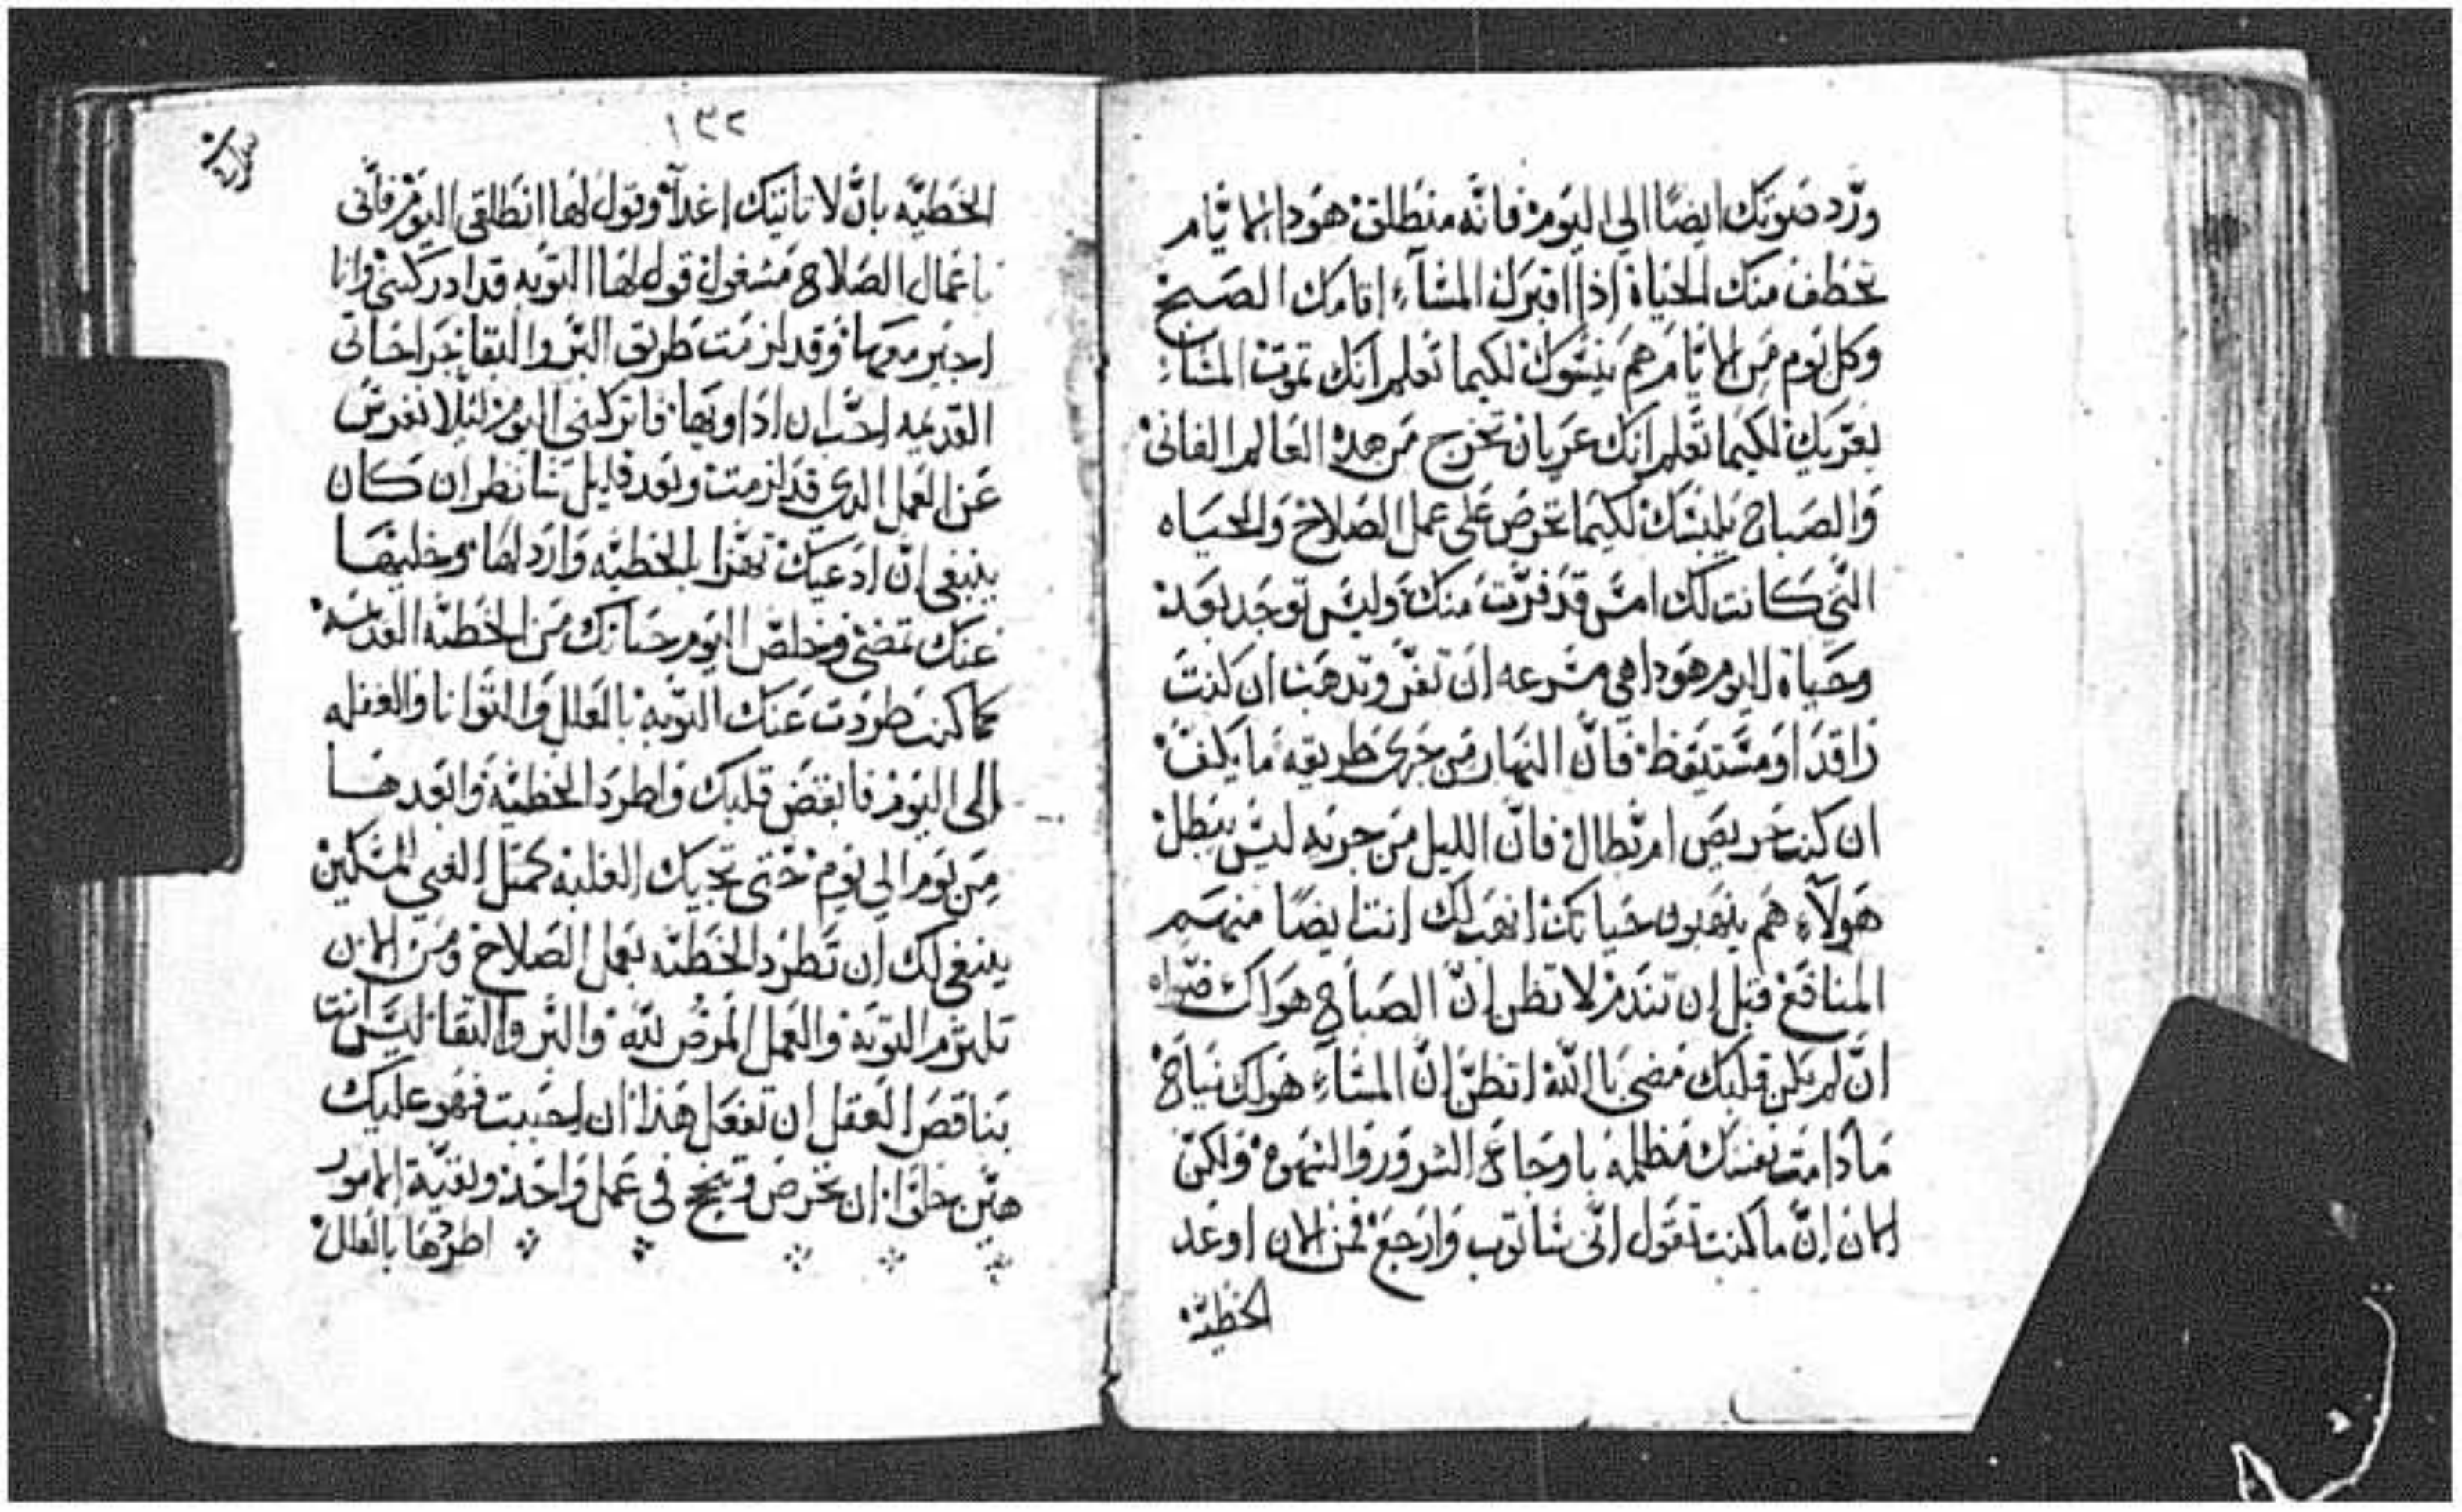 ورّد ضوتك ايضًا الي اليوم فانّه منطلق هودا الايّام
تخطف منك الحياة اذا اقبرك المسَآءِ اقامك الصبح
وكل يوم من الايّام هم ينبّوك لكيما تعلم انك تموت المسَاءِ
يعرّيك لكيما تعلم انك عريان تخرج من هده العالم الفاني
والصباح يلبسَك لكيما تحرص علي عمل الصلاح والحياه
التّي كانت لك امسَ قد فرّت منك وليسَ توجد بعد
وحياة اليوم هودا هي مسَرعه ان تفرّ وتدهب ان كنت
راقد او مسَتيقظ فانّ النهار من جري طريقه ما يكف
ان كنت حريص ام بطال فانّ الليل من جريه ليسَ يبطل
هولآءِ هم ينهبون حياتك انهب لك انت ايضًا منهم
المنافع قبل ان تندم لا تظن انّ الصباح هو لك
انّ لم يكن قلبك مضي باللّه اتظنّ انّ المسَآءِ هو لك نياح
ما دامت نفسَك مظلمه باوجاع الشرور والشهوه ولكن
الان انّ ما كنت تقول انّي سَاتوب وارجع فمن الان اوعد
الخطيّة
١٣٢
الخطيّه بانّ لا تاتيك اغدآ وقول لها انطلقي اليوم فانّي
باعمال الصلاح مشغول قول لها التوبه قد ادركتني وانا
وقد لزمت طريق البّر والنقا جراحاتي
القديمه احبّ ان اداويها فاتركيني اليوم لئلا
عن العمل الدي قد لزمت وبعد قليل سَانظر ان كان
ينبغي انّ ادعيك بهذا الخطيّه واردلها وخليها
عنك تمضي وخلص اليوم حياتك من الخطيّه القديمه
كما كنت طردت عنك التوبه بالعلل والتوانا والغفله
الى اليوم فانقض قلبك واطرد الخطيّة وابعدها
من يوم الي يوم حتى تجيك الغلبه كمتل الغني المسَكين
ينبغي لك ان تطرد الخطيّه بعمل الصلاح ومن الان
تلتزم التوبه والعمل المرض للّه والبّر والنقا ليسَ انت
بناقص العقل ان تفعل هذا ان احببت فهو عليك
هيّن خلّي ان تحرص وتنجح في عمل واحد وبقيّة الامور
اطردها بالعلل